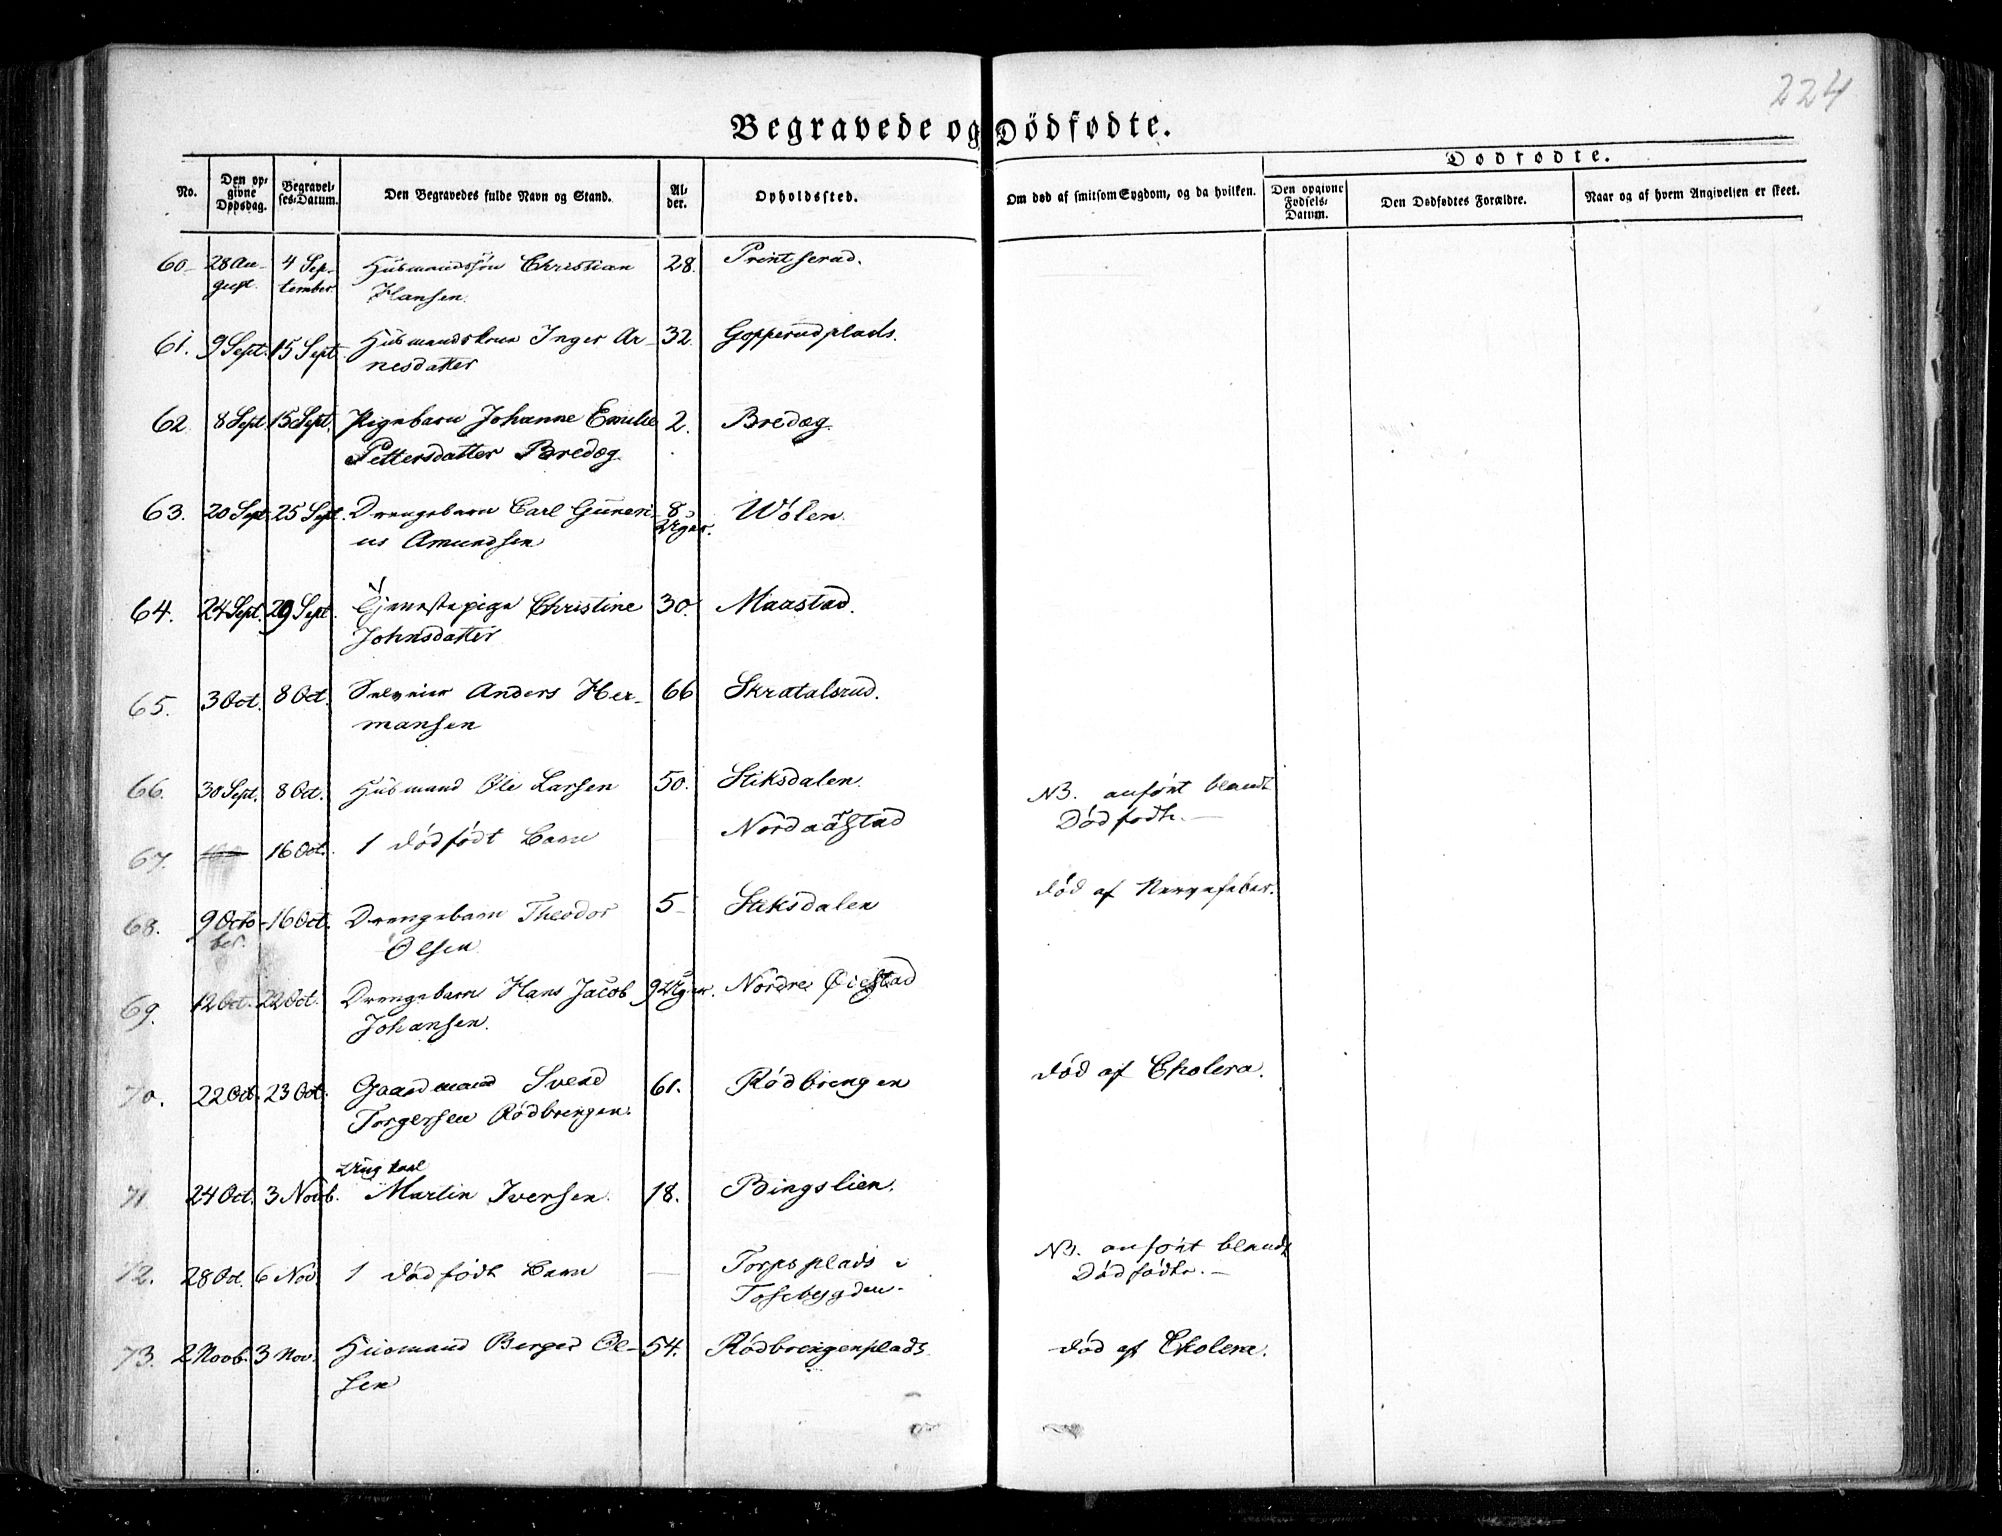 224
Begravede og Dödfødte.
Dødfødte.
No.
Den op-
givne
Dødsdag.
Begravel-
ses-Datum.
Den Begravedes fulde Navn og Stand.
Al-
der.
Opholdssted.
Om død af smitsom Sygdom, og da hvilken.
Den opgivne
Fødsels-
Datum.
Den Dødfødtes Forældre.
Naar og af hvem Angivelsen er skeet.
60 28 Au- 4 Sep- Husmandssøn Christian 28. Printserud.
gust. tember Hansen.
61. 9 Sept. 15 Sept. Husmandskone Inger Ar- 32 Gopperudplads.
nesdatter
62 8 Sept. 15 Sept. Pigebarn Johanne Emilie 2. Bredeg.
Pettersdatter Bredeg
63. 20 Sept. 25 Sept. Drengebarn Carl Guneri- 8 Wólen.
us Amundsen Uger.
64. 24 Sept. 29 Sept. Tjenestepige Christine 30. Maastad.
Johnsdatter
65. 3 Oct. 8 Oct. Selveier Anders Her- 66 Skratalsrud.
mansen
66. 30 Sept. 8 Oct. Husmand Ole Larsen 50. Stiksdalen.
NB. anført blandt
Dødfødte.—
67. 16 Oct. 1 dødfødt Barn — Nordaastad
68. 9 Octo- 16 Oct. Drengebarn Theodor 5 Stiksdalen død af Nervefeber.
ber. Olsen
69. 12 Oct. 22 Oct. Drengebarn Hans Jacob 9 Uger. Nordre Øiestad
Johansen.
70. 22 Oct. 23 Oct. Gaardmand Svend 61. Rødbrengen død af Cholera.
Torgersen Rødbrengen.
71 24 Oct. 3 Novb. Ungkarl
Martin Iversen. 18. Bingslien.
72. 28 Oct. 6 Nov. 1 dødfødt Barn — Torpsplads i NB. anført blandt
Tosebygden. Dødfødte.—
73. 2 Novb. 3 Nov. Husmand Berger Ol- 54. Rødbrengenplads død af Cholera.
sen